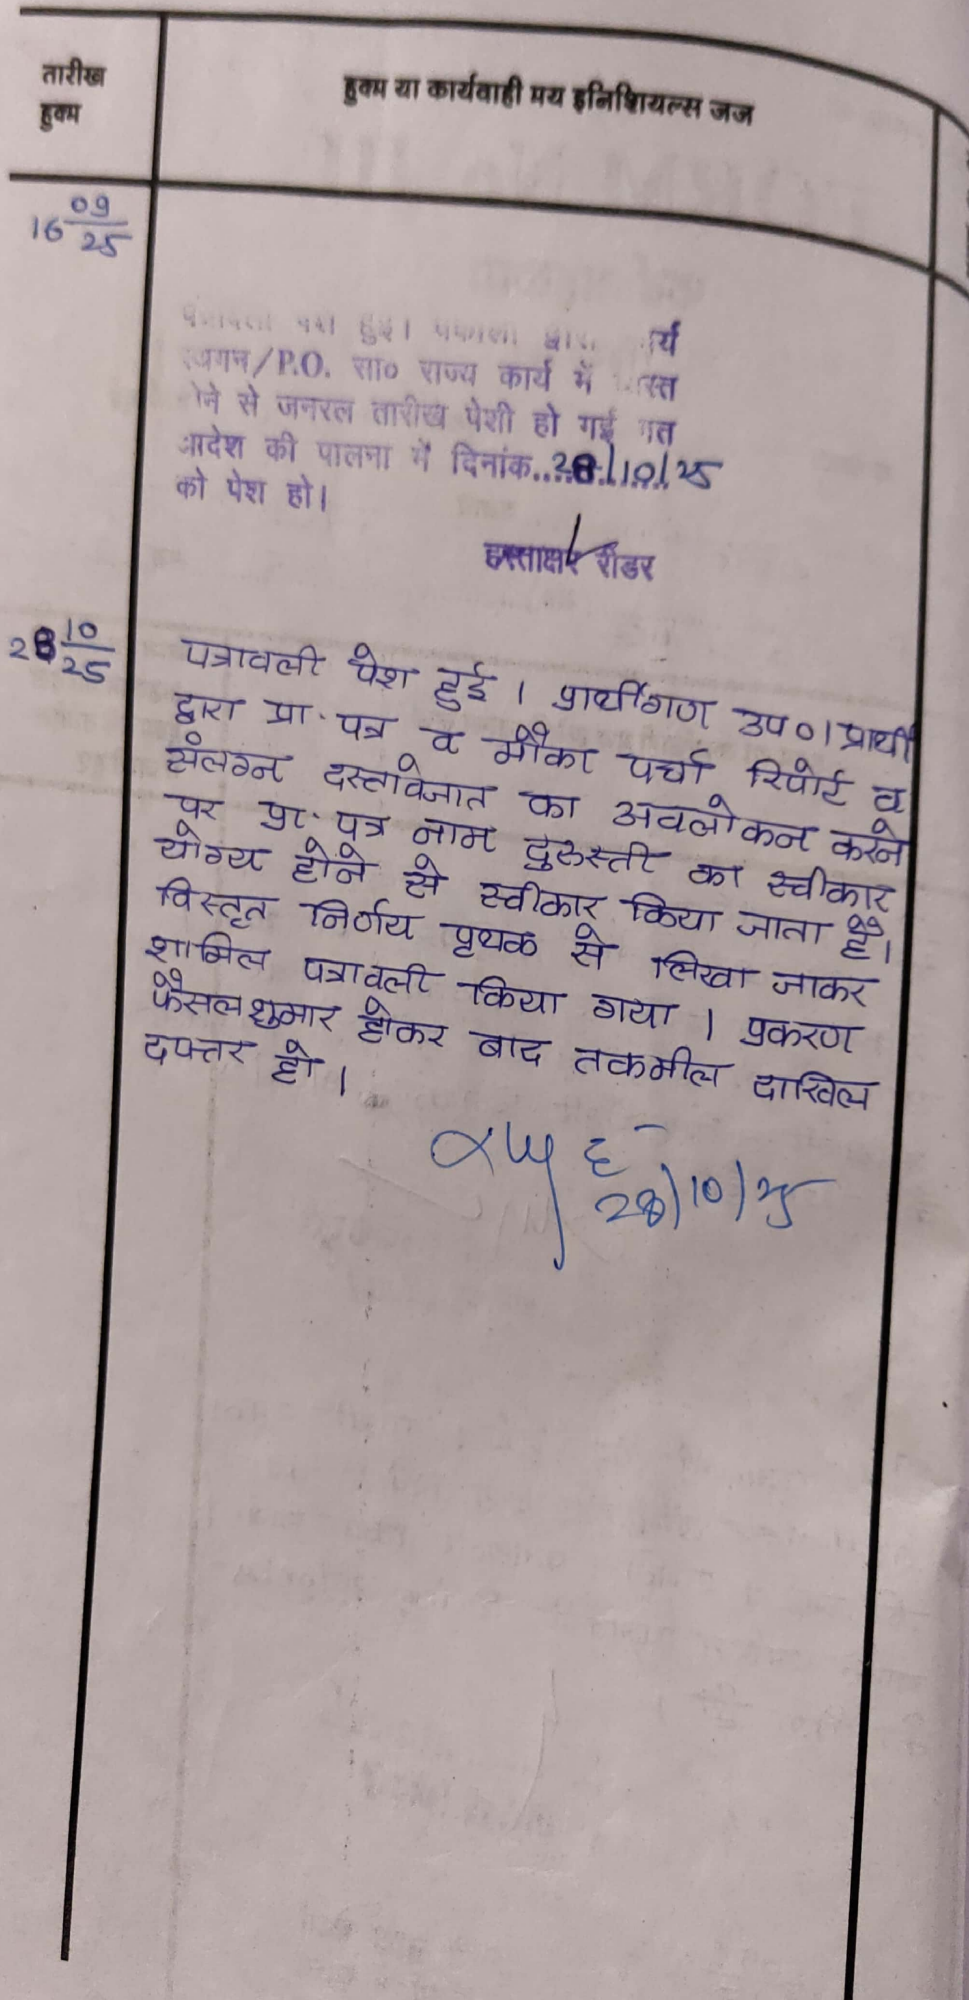 तारीख
हुक्म
हुक्म या कार्यवाही मय इनिशियल्स जज
16 09/25
हुई।
/P.O. सा० राज्य कार्य में
से जनरल तारीख पेशी हो गई
की पालना में दिनांक..28/10/25
को पेश हो।
हस्ताक्षर रीडर
28 10/25
पत्रावली पेश हुई । प्रार्थीगण उप० । प्रार्थी
द्वारा प्रा. पत्र व मौका पर्चा रिपोर्ट व
संलग्न दस्तावेजात का अवलोकन करने
पर प्रा. पत्र नाम दुरुस्ती का स्वीकार
योग्य होने से स्वीकार किया जाता है।
विस्तृत निर्णय पृथक से लिखा जाकर
शामिल पत्रावली किया गया । प्रकरण
फैसल शुमार होकर बाद तकमील दाखिल
दफ्तर हो ।
28/10/25